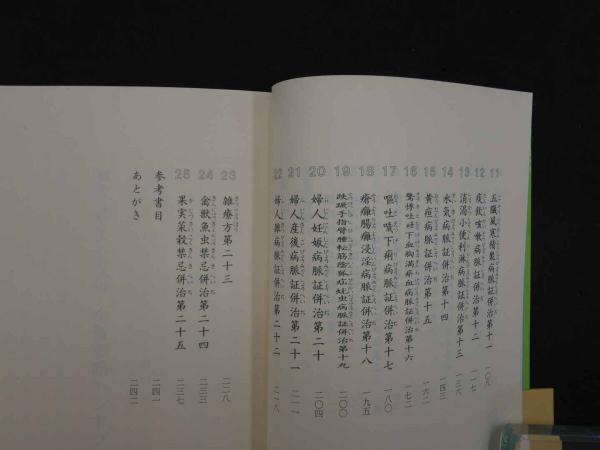 11 五臓風寒積聚病脈証併治第十一 一〇八
12 痰飲咳嗽病脈証併治第十二 一一七
13 消渇小便利淋病脈証併治第十三 一三六
14 水気病脈証併治第十四 一四三
15 黄疸病脈証併治第十五 一六二
16 驚悸吐衄下血胸満瘀血病脈証併治第十六 一七二
17 嘔吐噦下痢病脈証併治第十七 一八〇
18 瘡癰腸癰浸淫病脈証併治第十八 一九五
19 趺蹶手指臂腫転筋陰狐疝蚘虫病脈証併治第十九 二〇〇
20 婦人妊娠病脈証併治第二十 二〇四
21 婦人産後病脈証併治第二十一 二一一
22 婦人雑病脈証併治第二十二 二一八
23 雑療方第二十三 二二八
24 禽獣魚虫禁忌併治第二十四 二三三
25 果実菜穀禁忌併治第二十五 二三七
参考書目 二四一
あとがき 二四二